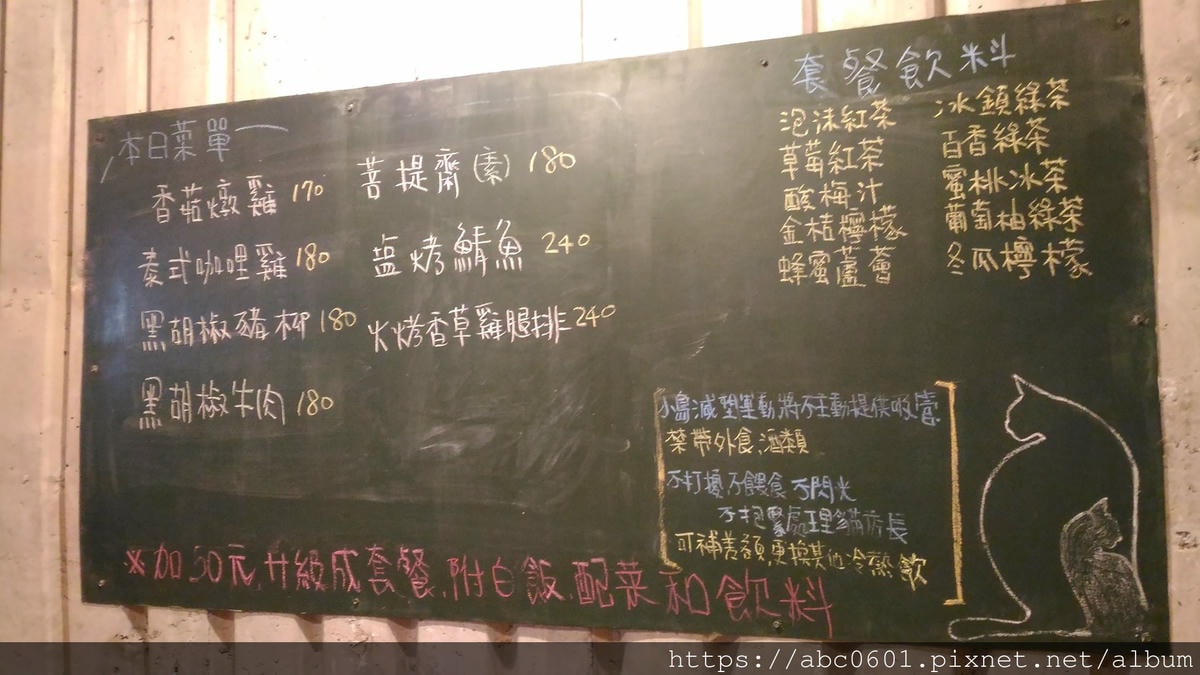 本日菜單
香菇燉雞 170
泰式咖哩雞 180
黑胡椒豬柳 180
黑胡椒牛肉 180
菩提齋(素) 180
塩烤鯖魚 240
火烤香草雞腿排 240
套餐飲料
泡沫紅茶
草莓紅茶
酸梅汁
金桔檸檬
蜂蜜蘆薈
冰鎮綠茶
百香綠茶
蜜桃冰茶
葡萄柚綠茶
冬瓜檸檬
小島減塑運動,將不主動提供吸管
禁帶外食,酒類
不打擾 不餵食 不閃光
不抱緊處理貓店長
可補差額,更換其他冷熱飲
※加50元,升級成套餐,附白飯,配菜和飲料
https://abc0601.pixnet.net/album